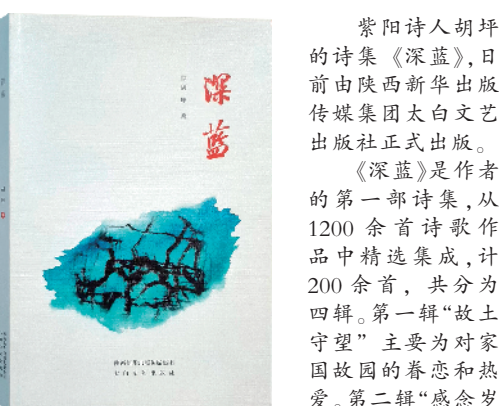 深
蓝
紫阳诗人胡坪
的诗集《深蓝》,日
前由陕西新华出版
传媒集团太白文艺
出版社正式出版。
《深蓝》是作者
的第一部诗集,从
1200余首诗歌作
品中精选集成,计
200余首，共分为
四辑。第一辑“故土
守望”主要为对家
国故园的眷恋和热
爱。第二辑“感念岁